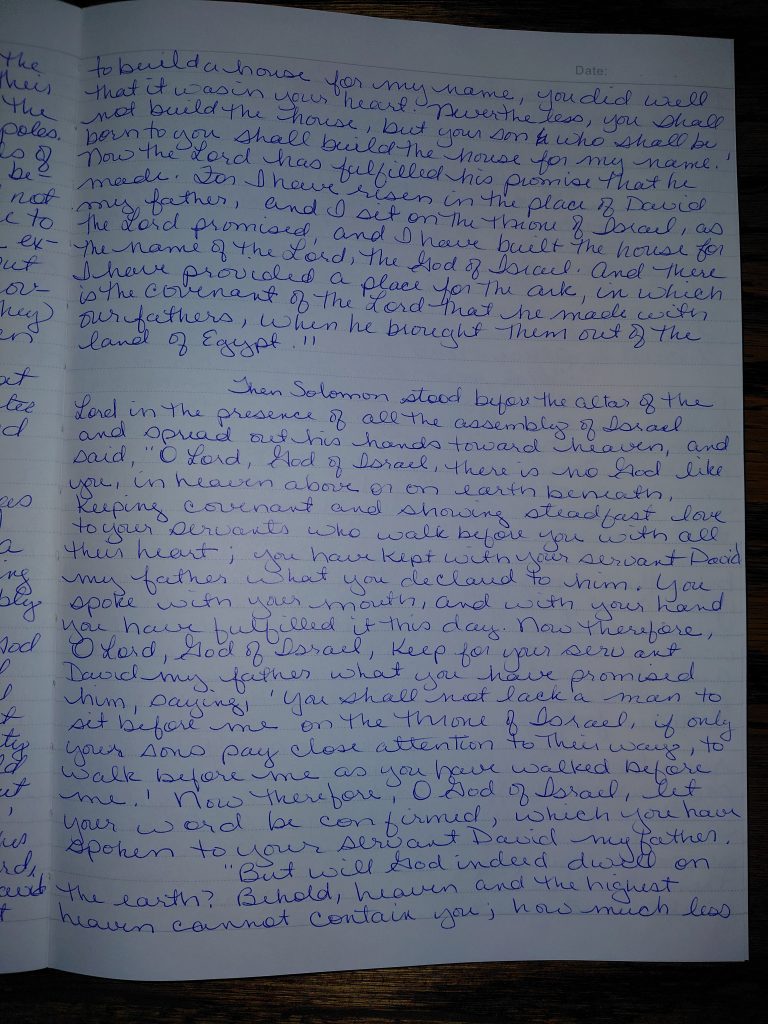 the
their
the
poles.
as of
be
not
e to
ex-
out
ov-
they)
en
at
tee
d
as
a
ing
bly
God
l
t
ty
ld
ut
us
ord,
t
Date:
to build a house for my name, you did well
that it was in your heart. Nevertheless, you shall
not build the house, but your son who shall be
born to you shall build the house for my name.'
Now the Lord has fulfilled his promise that he
made. For I have risen in the place of David
my father, and I sit on the throne of Israel, as
the Lord promised, and I have built the house for
the name of the Lord, the God of Israel. And there
I have provided a place for the ark, in which
is the covenant of the Lord that he made with
our fathers, when he brought them out of the
land of Egypt."
Then Solomon stood before the altar of the
Lord in the presence of all the assembly of Israel
and spread out his hands toward heaven, and
said, "O Lord, God of Israel, there is no God like
you, in heaven above or on earth beneath,
keeping covenant and showing steadfast love
to your servants who walk before you with all
their heart; you have kept with your servant David
my father what you declaud to him. You
spoke with your mouth, and with your hand
you have fulfilled it this day. Now therefore,
O Lord, God of Israel, keep for your servant
David my father what you have promised
him, saying, 'You shall not lack a man to
sit before me on the throne of Israel, if only
your sons pay close attention to their way, to
walk before me as you have walked before
me.' Now therefore, O God of Israel, let
your word be confirmed, which you have
spoken to your servant David my father.
"But will God indeed dwell on
the earth? Behold, heaven and the highest
heaven cannot contain you; how much less